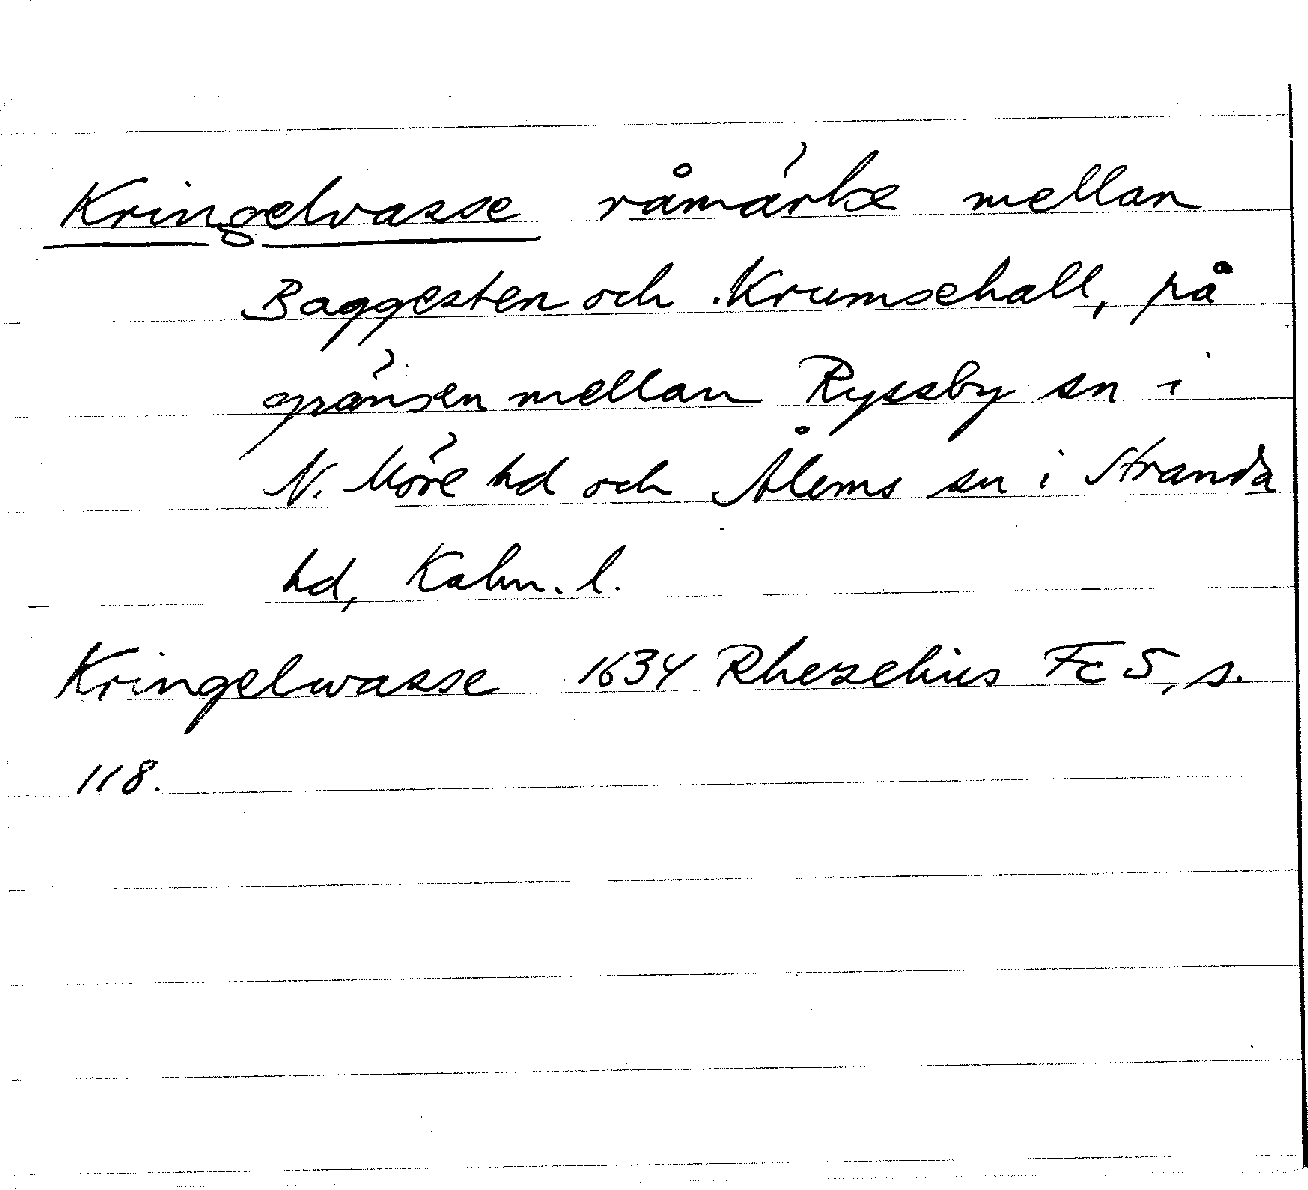 Kringelvasse råmärke mellan
Baggesten och Krumsehall, på
gränsen mellan Ryssby sn i
N. Möre hd och Ålems sn i Stranda
hd, Kalm. l.
Kringelwasse 1634 Rhezelius Fc 5, s.
118.